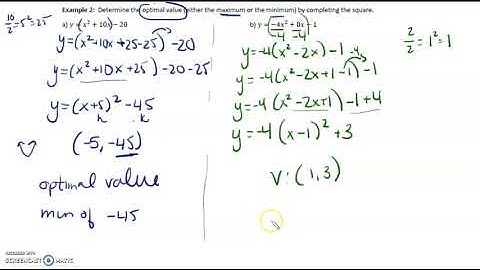 Example 2: Determine the optimal value (either the maximum or the minimum) by completing the square.
a) y = (x² + 10x) - 20
10/2 = 5² = 25
y = (x² + 10x + 25 - 25) - 20
y = (x² + 10x + 25) - 20 - 25
y = (x + 5)² - 45
h k
(-5, -45)
optimal value
min of -45
b) y = -4x² + 8x - 1
-4 -4
2/2 = 1² = 1
y = -4(x² - 2x) - 1
y = -4(x² - 2x + 1 - 1) - 1
-4
y = -4(x² - 2x + 1) - 1 + 4
y = -4(x - 1)² + 3
V: (1, 3)
RECORDED WITH
SCREENCAST MATIC